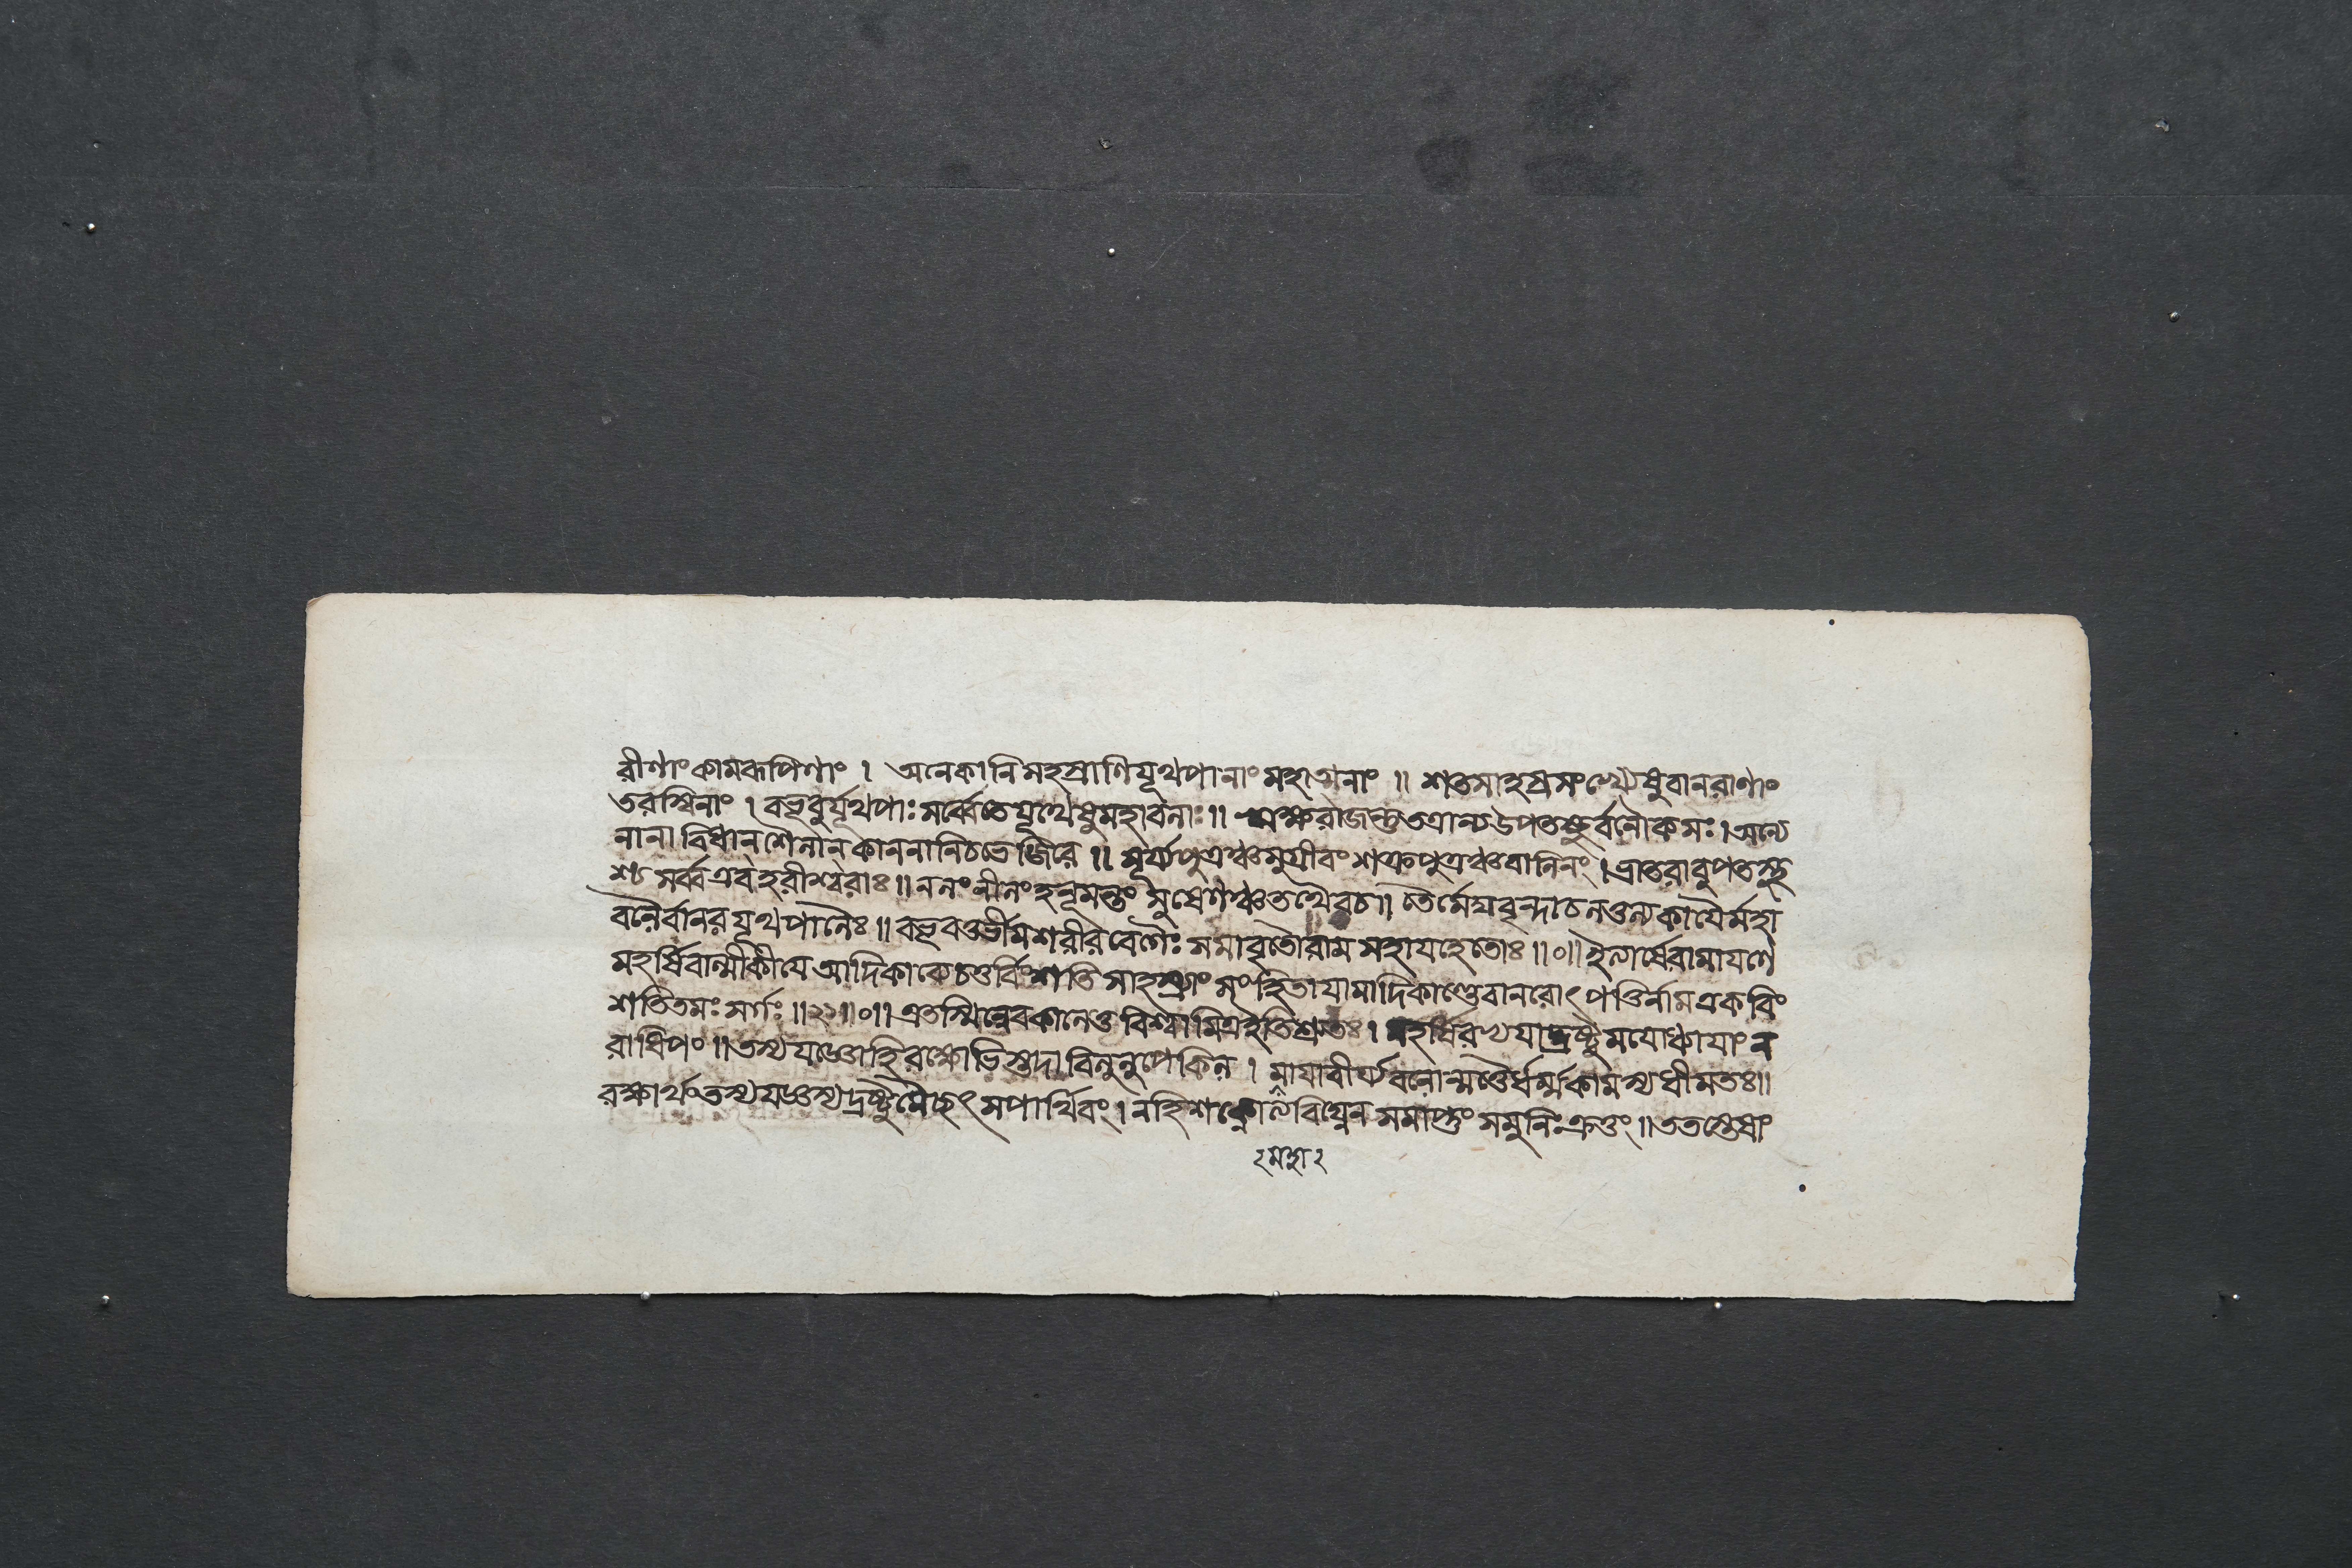 রীণাংকামরূপিণাং । অনেকানিসহস্রাণিযূথপানাংমহাত্মনাং ॥ শতসাহস্রসংখ্যেষুবানরাণাং
তরস্বিনাং । বভূবুর্যূথপাঃসর্ব্বেতেযূথেষুমহাবলাঃ ॥ ঋক্ষরাজন্তুতত্রান্যউপতস্থুর্বনৌকসঃ । অন্যে
নানাবিধান্‌শৈলান্‌কাননানিচভেজিরে ॥ সূর্য্যপুত্রঞ্চসুগ্রীবংশক্রপুত্রঞ্চবালিনং । ভ্রাতরাবুপতস্থু
শ্চসর্ব্বএবহরীশ্বরাঃ ॥ নলংনীলংহনূমন্তংসুষেণঞ্চতথৈবচ ॥ তৈর্মেঘবৃন্দাচলতুল্যকায়ৈর্মহা
বলৈর্বানরযূথপালৈঃ ॥ বভূবভূর্ভীমশরীরবেগৈঃসমাবৃতৌরামসহাযহেতোঃ ॥০॥ ইত্যার্ষেরামাযণে
মহর্ষিবাল্মীকীযেআদিকাব্যেচতুর্বিংশতিসাহস্র্যাংসংহিতাযামাদিকাণ্ডেবানরোৎপত্তির্নামএকবিং
শতিতমঃসর্গঃ ॥২১॥০॥ এতস্মিন্নেবকালেতুবিশ্বামিত্রইতিশ্রুতঃ । মহর্ষিরভ্যযাদ্দ্রষ্টুমযোধ্যাযাংন
রাধিপং ॥ তস্যযজ্ঞোহিরক্ষোভিস্তদাবিলুলুপেকিল । মাযাবীর্য্যবলোন্মত্তৈর্ধর্ম্মকামস্যধীমতঃ ॥
রক্ষার্থংতস্যযজ্ঞস্যদ্রষ্টুমৈচ্ছৎসপার্থিবং । নহিশক্নোত্যবিঘ্নেনসমাপ্তুংসমুনিঃক্রতুং ॥ ততস্তেষাং
২মহা২